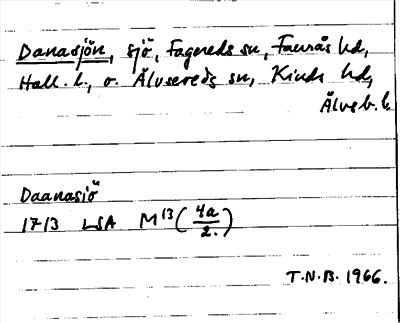 Danasjön, sjö, Fagereds sn, Faurås hd,
Hall. l., o. Älvsereds sn, Kinds hd,
Älvsb. l.
Daanasiö
1713 LSA M13 (4a/2.)
T.N.B. 1966.